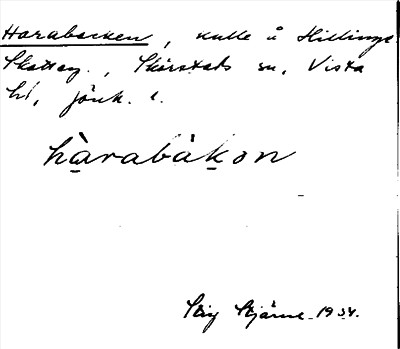 Harabacken, kulle å Hillings
Skatteg., Skärstads sn, Vista
hd, Jönk. l.
hàrabàkon
Stig Stjärne 1934.